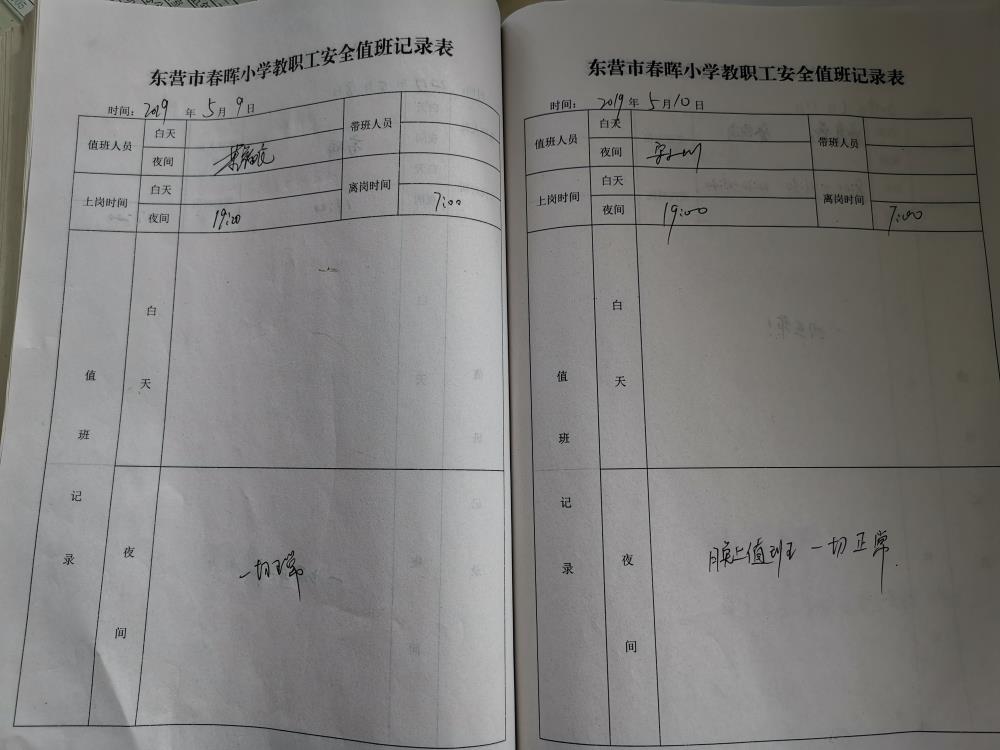 东营市春晖小学教职工安全值班记录表
时间：2019 年 5 月 9 日
值班人员 白天 带班人员
夜间
上岗时间 白天 离岗时间
夜间 19:00 7:00
值班记录
白天
夜间
一切正常
东营市春晖小学教职工安全值班记录表
时间：2019 年 5 月 10 日
值班人员 白天 带班人员
夜间
上岗时间 白天 离岗时间
夜间 19:00 7:00
值班记录
白天
夜间
晚上值班 一切正常.